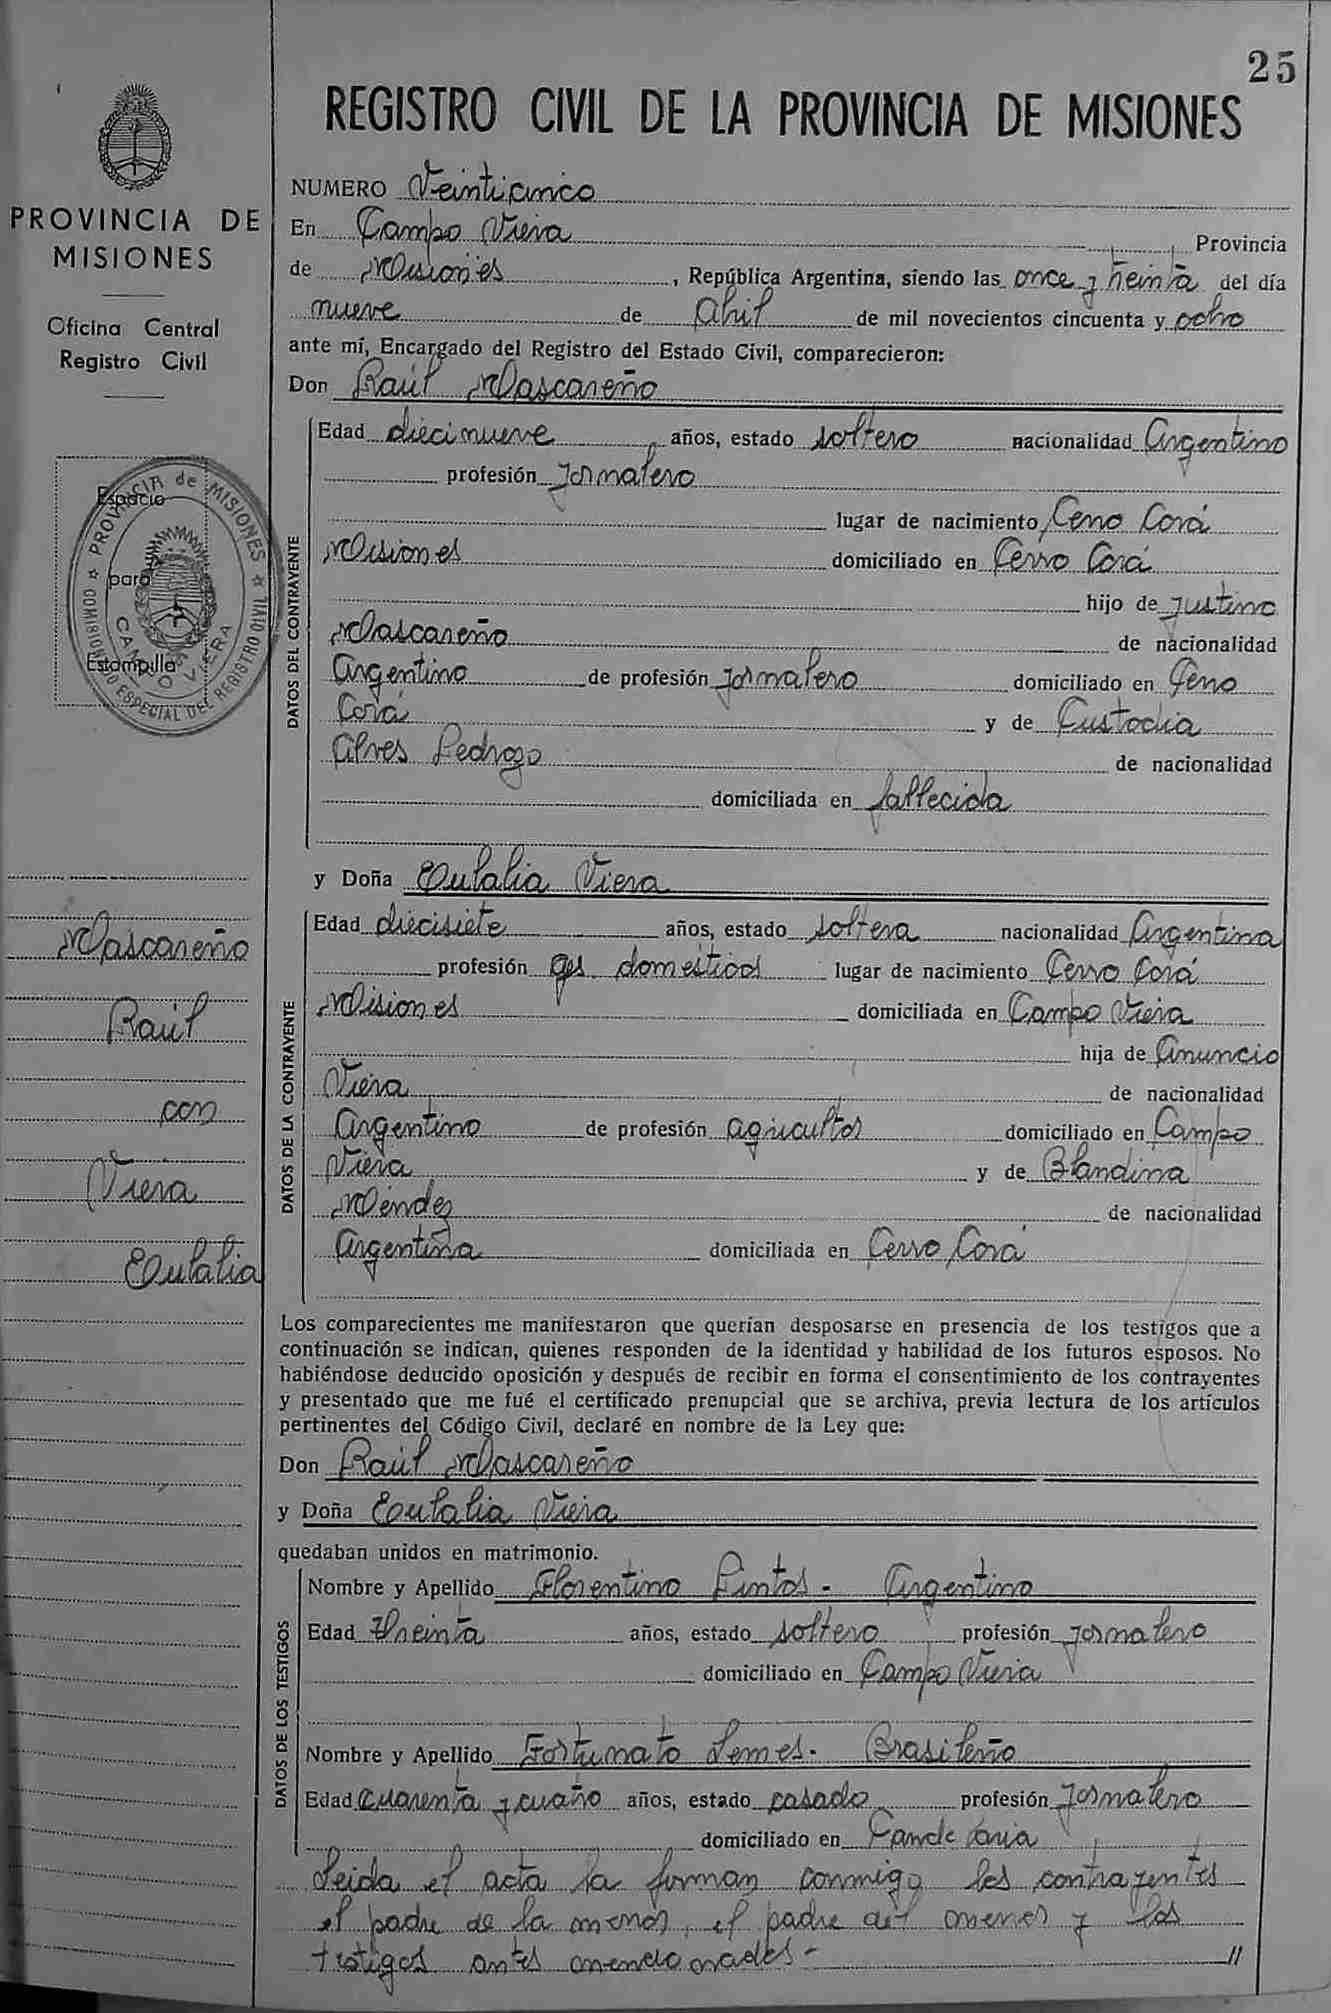 25
REGISTRO CIVIL DE LA PROVINCIA DE MISIONES
PROVINCIA DE
MISIONES
Oficina Central
Registro Civil
PROVINCIA de MISIONES
COMISIONADO ESPECIAL DEL REGISTRO CIVIL
CAMPO VIERA
Espacio
para
Estampilla
Mascareño
Raúl
con
Viera
Eulalia
NUMERO Veinticinco
En Campo Viera Provincia
de Misiones, República Argentina, siendo las once y treinta del día
nueve de Abril de mil novecientos cincuenta y ocho
ante mí, Encargado del Registro del Estado Civil, comparecieron:
Don Raúl Mascareño
DATOS DEL CONTRAYENTE
Edad diecinueve años, estado soltero nacionalidad Argentino
profesión Jornalero
lugar de nacimiento Cerro Corá
Misiones domiciliado en Cerro Corá
hijo de Justino
Mascareño de nacionalidad
Argentino de profesión Jornalero domiciliado en Cerro
Corá y de Custodia
Alves Pedrozo de nacionalidad
domiciliada en fallecida
y Doña Eulalia Viera
DATOS DE LA CONTRAYENTE
Edad diecisiete años, estado soltera nacionalidad Argentina
profesión qs domésticos lugar de nacimiento Cerro Corá
Misiones domiciliada en Campo Viera
hija de Anuncio
Viera de nacionalidad
Argentino de profesión agricultor domiciliado en Campo
Viera y de Blandina
Méndez de nacionalidad
Argentina domiciliada en Cerro Corá
Los comparecientes me manifestaron que querían desposarse en presencia de los testigos que a
continuación se indican, quienes responden de la identidad y habilidad de los futuros esposos. No
habiéndose deducido oposición y después de recibir en forma el consentimiento de los contrayentes
y presentado que me fué el certificado prenupcial que se archiva, previa lectura de los artículos
pertinentes del Código Civil, declaré en nombre de la Ley que:
Don Raúl Mascareño
y Doña Eulalia Viera
quedaban unidos en matrimonio.
DATOS DE LOS TESTIGOS
Nombre y Apellido Florentino Pintos - Argentino
Edad treinta años, estado soltero profesión Jornalero
domiciliado en Campo Viera
Nombre y Apellido Fortunato Lemes - Brasileño
Edad cuarenta y cuatro años, estado casado profesión Jornalero
domiciliado en Candelaria
Leida el acta la firman conmigo los contrayentes
el padre de la menor, el padre del menor y los
testigos antes mencionados - //